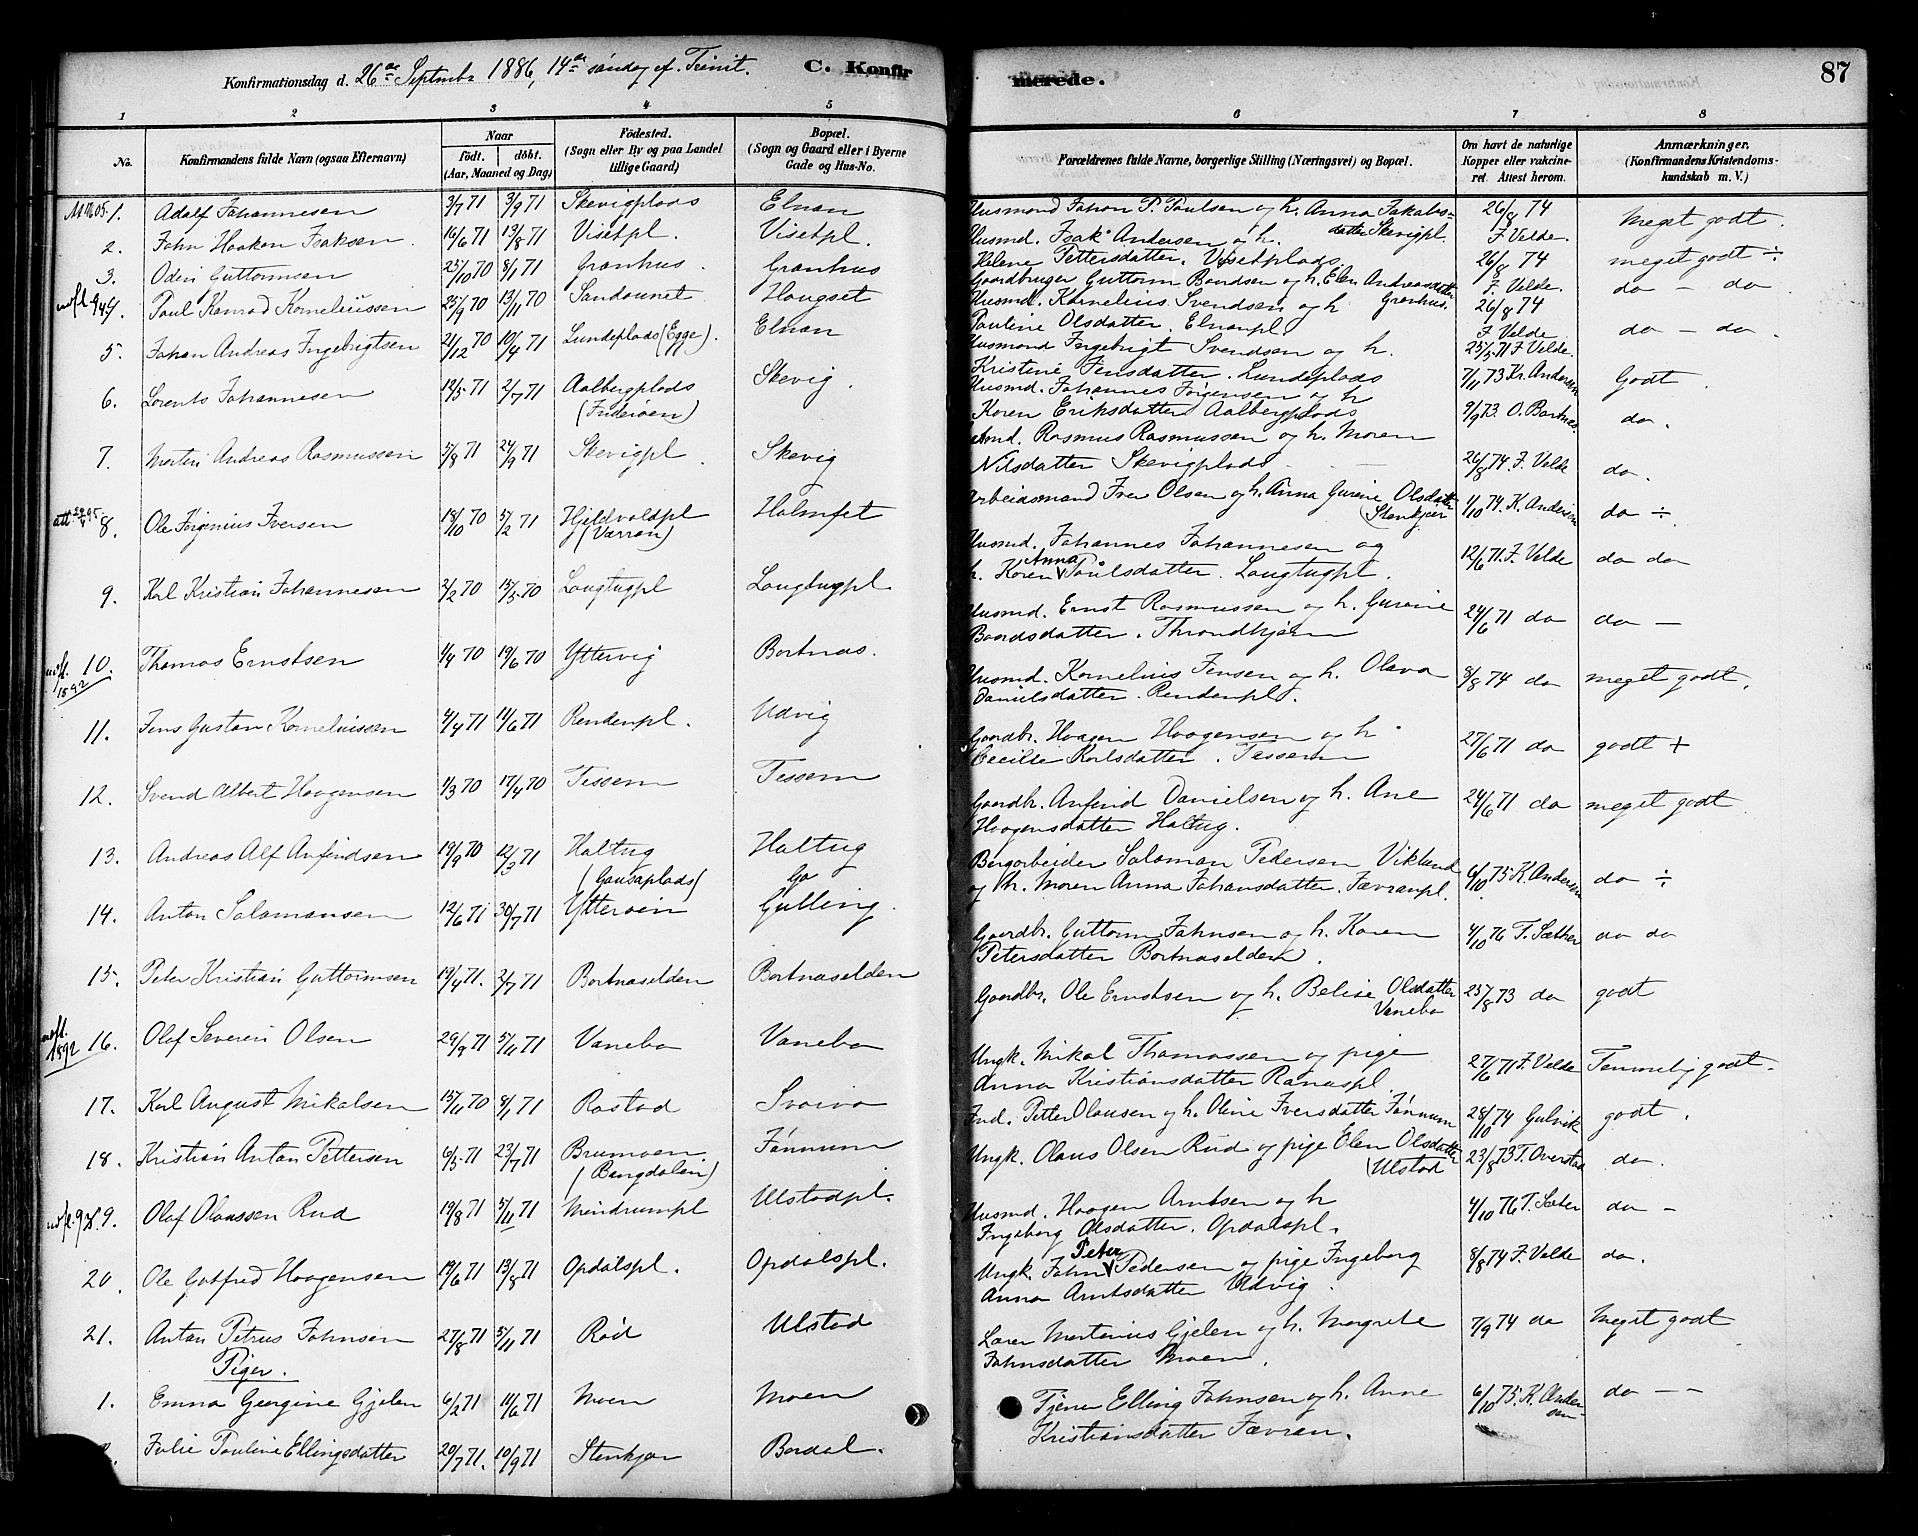 Konfirmationsdag d. 26de Septmbr 1886, 14de søndag ef. Trinit. C. Konfir
merede. 87
1 2 3 4 5 6 7 8
No. Konfirmandens fulde Navn (ogsaa Efternavn) Naar födt. döbt. (Aar, Maaned og Dag) Födested. (Sogn eller By og paa Landet tillige Gaard) Bopæl. (Sogn og Gaard eller i Byerne Gade og Hus-No.
Forældrenes fulde Navne, borgerlige Stilling (Næringsvei) og Bopæl. Om havt de naturlige Kopper eller vakcineret. Attest herom. Anmærkninger. (Konfirmandens Kristendomskundskab m. V.)
1. Adolf Johannesen 3/7 71 3/9 71 Skevigplads Elnan
Husmand Johan P. Paulsen og h. Anna Jakobsdatter Skevigpl. 26/8 74 F. Velde. Meget godt.
2. John Haakon Isaksen. 16/6 71 13/8 71 Visetpl. Visetpl.
Husmd. Isak Andersen og h. Helene Pettersdatter. Visetplads. 26/8 74 F. Velde. meget godt ÷
3. Odin Guttormsen 25/10 70 8/1 71 Granhus. Granhus
Gaardbruger Guttorm Baardsen og h. Elen Andreasdatter Granhus. 26/8 74 F. Velde do - do
4. Paul Konrad Korneliussen 25/9 70 13/11 70 Sandaunet Haugset
Husmd. Kornelius Svendsen og h. Pauline Olsdatter. Elnanpl. do - do.
5. Johan Andreas Ingebrigtsen 21/12 70 10/4 71 Lundeplads (Egge). Elnan
Husmand Ingebrigt Svendsen og h. Kristine Jensdatter. Lundeplads 25/5 71 F. Velde. Godt.
6. Lorents Johannesen 12/5 71 2/7 71 Aalbergplads (Inderøen) Skevig.
Husmd. Johannes Jørgensen og h Karen Eriksdatter Aalbergplads 7/11 73 Kr. Andersen do.
7. Morten Andreas Rasmussen 5/8 71 24/9 71 Skevigpl. Skevig
Husmd. Rasmus Rasmussen og h. Maren Nilsdatter Skevigplads - - 26/8 74. F. Velde do.
9/9 73. O. Bartnes.
8. Ole Jørginius Iversen 18/10 70 5/2 71 Hjeldvoldpl (Værran) Holmset
Arbeidsmand Iver Olsen og h. Anna Gurine Olsdatter (Stenkjær 4/10 74. K. Andersen do ÷
9. Karl Kristian Johannesen 2/2 70 15/5 70 Langtugpl Langtugpl
Husmd. Johannes Johannesen og h. Karen Anna Paulsdatter. Langtugpl. 12/6 71. F. Velde do do
10. Thomas Ernstsen 4/4 70 19/6 70 Yttervig Bartnas.
Husmd. Ernst Rasmussen og h. Gurine Baardsdatter. Throndhjem 24/6 71 do do -
11. Jens Gustav Korneliussen 4/4 71 11/6 71 Rendenpl. Udvig
Husmd. Kornelius Jensen og h. Olava Danielsdatter. Rendenpl. 8/8 74 do meget godt.
12. Svend Albert Haagensen 1/3 70 17/4 70 Tessem Tessem
Gaardbr. Haagen Haagensen og h Cecilie Karlsdatter. Tessem 27/6 71 do godt +
13. Andreas Alf Anfindsen 19/9 70 12/3 71 Haltug (Gausaplads) Haltug
Gaardbr. Anfind Danielsen og h. Ane Haagensdatter Haltug. 24/6 71 do meget godt
14. Anton Salamonsen 12/6 71 30/7 71 Ytterøen Gulling.
Bergarbeider Salamon Pedersen Viklund og h. Maren Anna Johansdatter. Færranpl. 4/10 75 K. Andersen do ÷
15. Peter Kristian Guttormsen 19/4 71. 2/7 71 Bortnaselden Bortnaselden
Gaardbr. Guttorm Johnsen og h. Karen Petersdatter Bortnaselden. 4/10 76 T. Sæther do do
16. Olaf Severin Olsen 29/9 71 5/11 71 Vanebo Vanebo
Gaardbr. Ole Ernstsen og h. Belise Olsdatter Vanebo 25/8 73 do godt
17. Karl August Mikalsen 15/11 70 8/1 71 Rostad Svarva
Ungk. Mikal Thomassen og pige Anna Kristiansdatter Ranaspl. 27/6 71 F. Velde Temmelig godt.
18. Kristian Anton Pettersen 6/5 71 23/7 71 Brumoen. (Bangdalen) Fánnum
Ind. Petter Olausen og h. Oline Iversdatter Fánnum 28/10 74 Gulvik godt.
19. Olaf Olaussen Rud 19/8 71 5/11 71 Meindrumpl Ulstadpl.
Ungk. Olaus Olsen Rud og pige Elen Olsdatter (Ulstad 23/8 73 T. Overstad do.
20. Ole Gotfred Haagensen 19/6 71 13/8 71 Opdalspl. Opdalspl.
Husmd. Haagen Arntsen og h Ingeborg Olsdatter. Opdalspl. 4/10 76 T. Sæter do -
21. Anton Petrus Johnsen 27/8 71 5/11 71 Rød Ulstad
Ungk. John Peter Pedersen og pige Ingeborg Anna Arntsdatter Udvig. 8/8 74 F. Velde do.
Piger.
1. Emma Georgine Gjelen 6/2 71 11/6 71 Moen Moen
Lærer Martinus Gjelen og h. Margrete Johnsdatter Moen. 7/9 74 do Meget godt
2. Julie Pauline Ellingsdatter 20/7 71. 10/9 71 Stenkjær Bardal.
Tjener Elling Johnsen og h. Anne Kristiansdatter Færran. 6/10 75. K. Andersen do - -